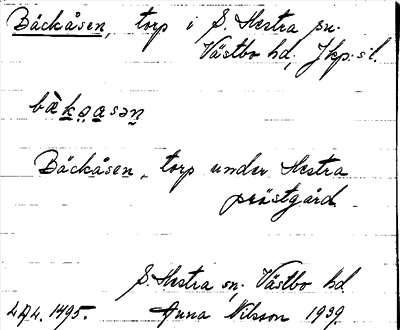 Bäckåsen, torp i S. Hestra sn.
Västbo hd, Jkp. s l.
Bäckåsen, torp under Hestra
prästgård
S. Hestra sn, Västbo hd.
1495. Anna Nilsson 1939.